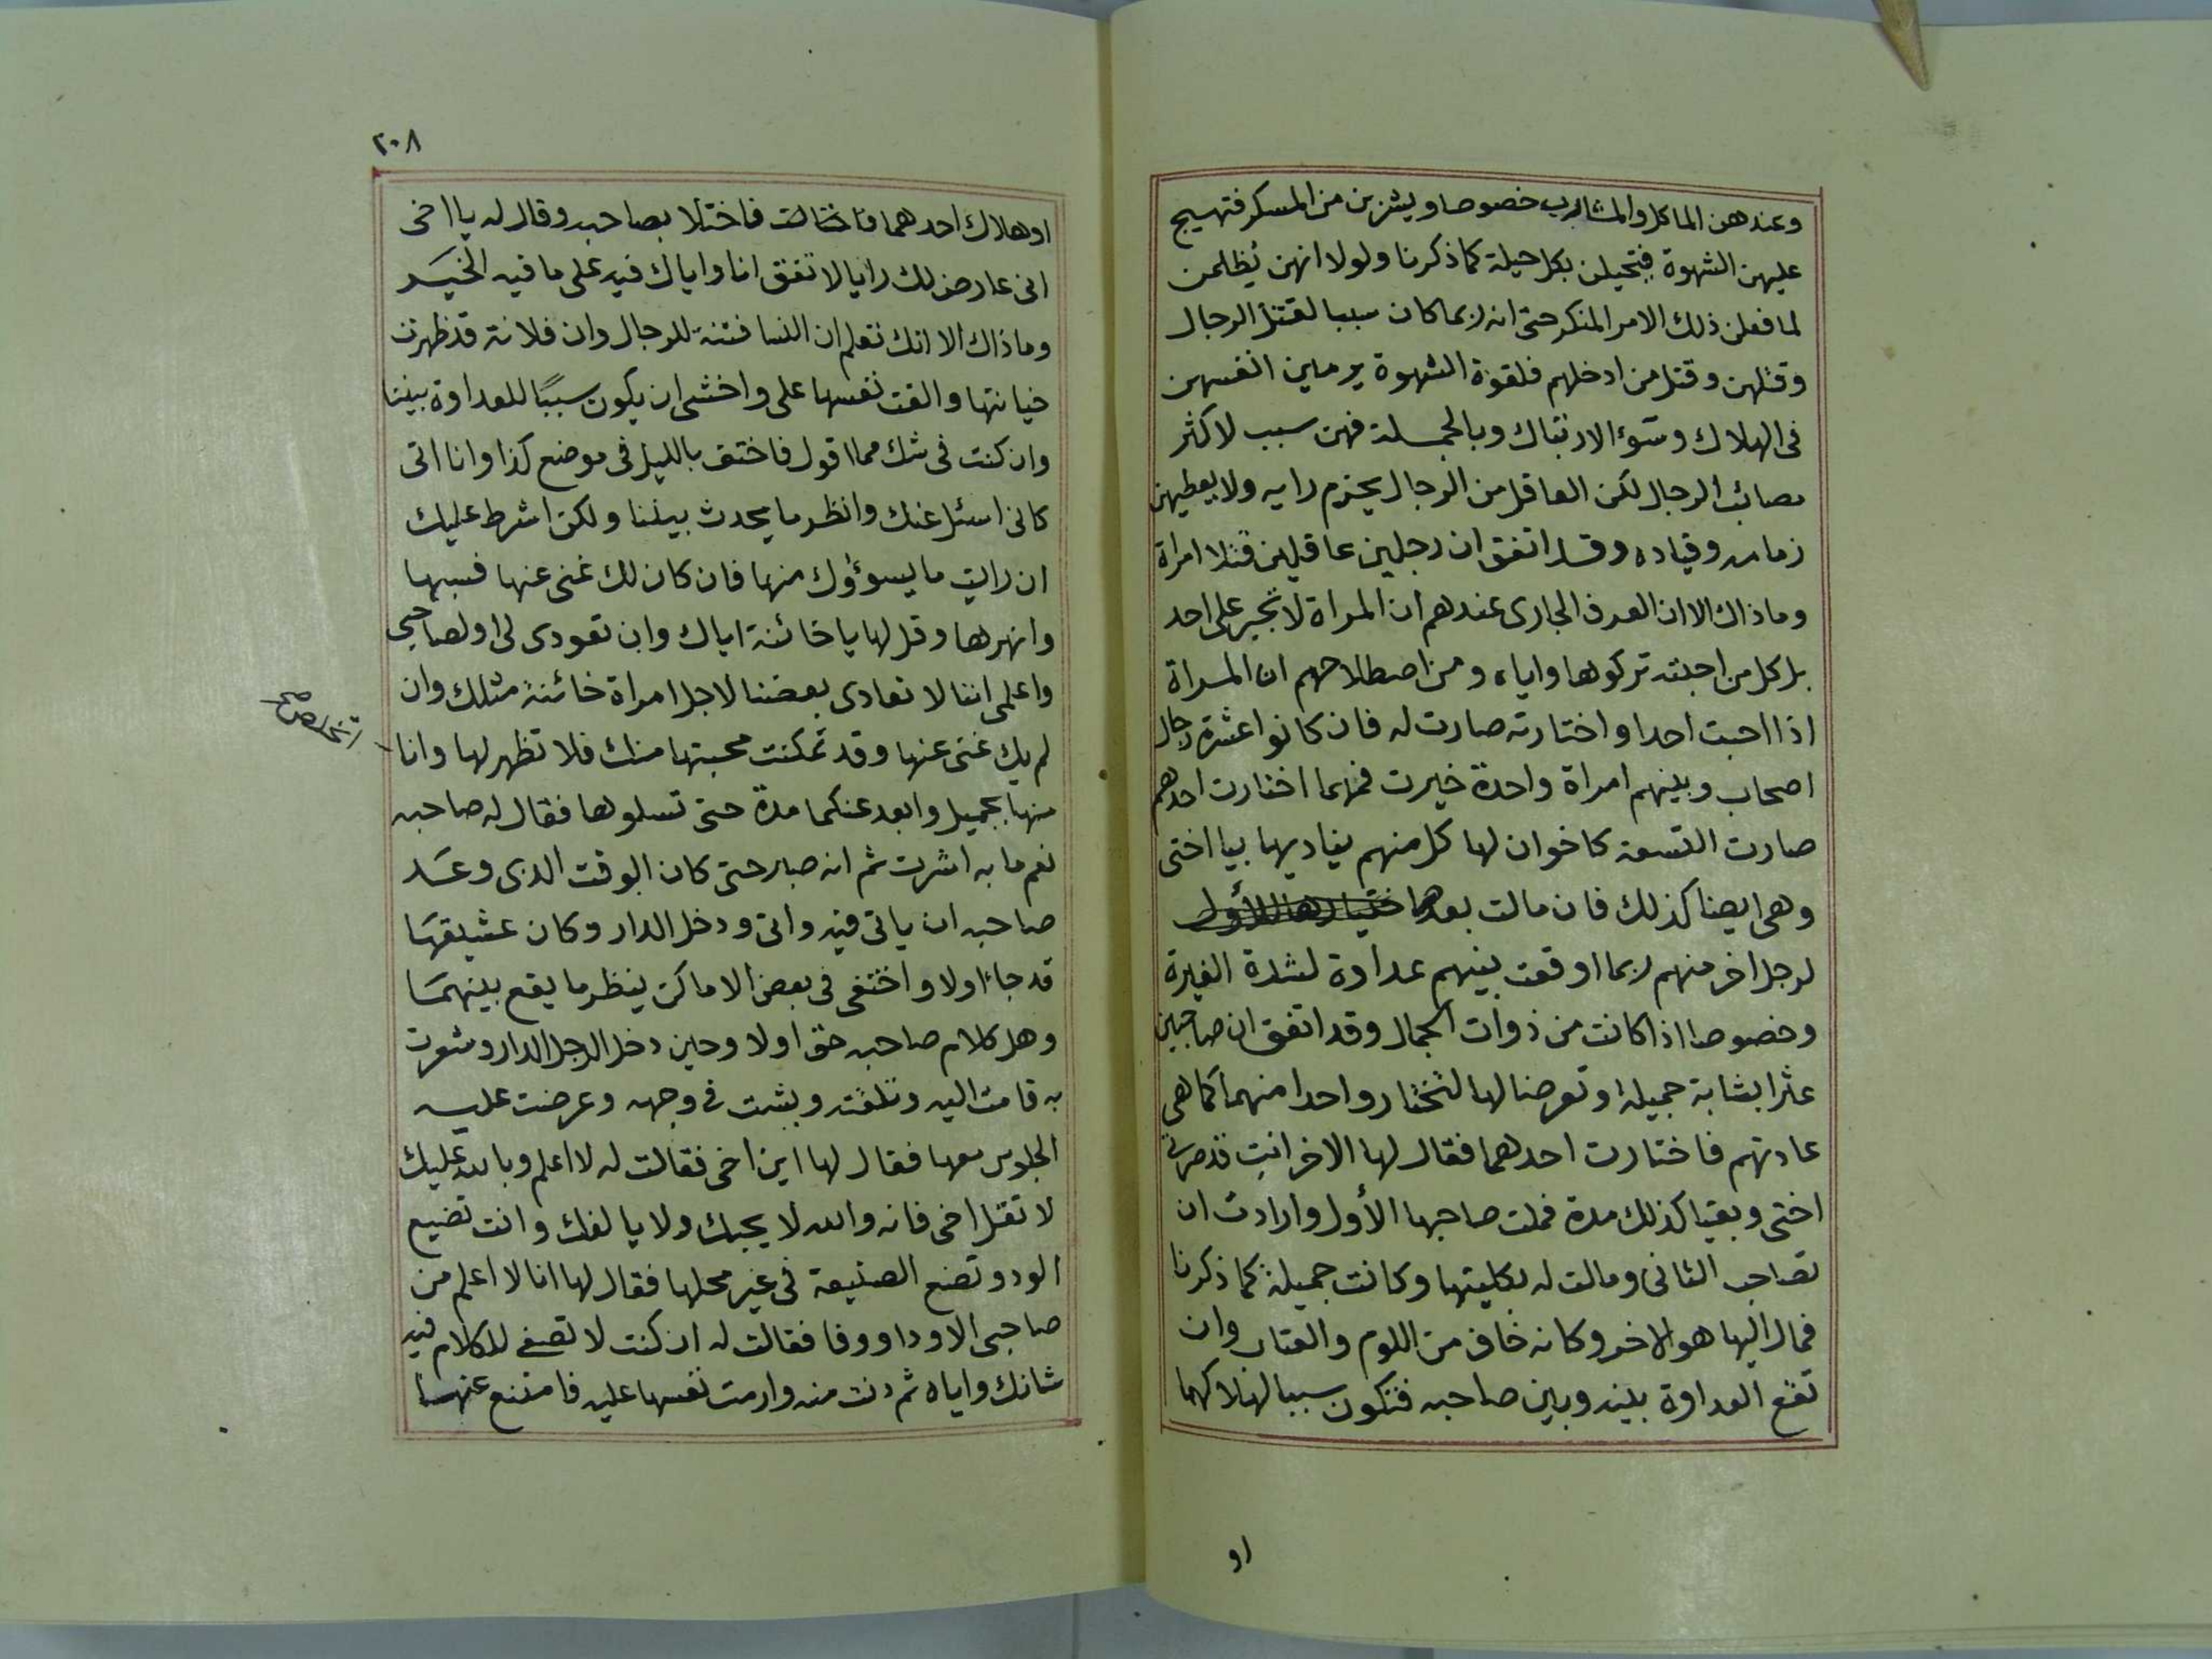 وعندهن الماكل والمشارب خصوصا ويشربن من المسكر فتهيج
عليهن الشهوة فيتحيلن بكل حيلة كما ذكرنا ولولا انهن يظلمن
لما فعلن ذلك الامر المنكر حتى انه ربما كان سببا لقتل الرجال
وقتلهن وقتل من ادخلهم فلقوة الشهوة يرمين انفسهن
فى الهلاك وسوء الارتباك وبالجملة فهن سبب لاكثر
مصائب الرجال لكن العاقل من الرجال يحزم رايه ولا يعطيهن
زمامه وقياده وقد اتفق ان رجلين عاقلين قتلا امراة
وما ذاك الا ان العرف الجارى عندهم ان المراة لا تجبر على احد
بل كل من احبته تركوها واياه ومن اصطلاحهم ان المراة
اذا احبت احدا واختارته صارت له فان كانوا عشرة رجال
اصحاب وبينهم امراة واحدة خيرت فمهما اختارت احدهم
صارت التسعة كاخوان لها كل منهم يناديها بيا اختى
وهى ايضا كذلك فان مالت بعدها اختيارها للأول
لرجل اخر منهم ربما اوقعت بينهم عداوة لشدة الغيرة
وخصوصا اذا كانت من ذوات الجمال وقد اتفق ان صاحبين
عثرا بشابة جميلة وتعرضا لها لتختار واحدا منهما كما هى
عادتهم فاختارت احدهما فقال لها الاخر انت قد صرتى
اختى وبقيا كذلك مدة فملت صاحبها الأول وارادت ان
تصاحب الثانى ومالت له بكليتها وكانت جميلة كما ذكرنا
فمال اليها هو الاخر وكانه خاف من اللوم والعتاب وان
تقع العداوة بينه وبين صاحبه فتكون سببا لهلاكهما
او
٢٠٨
او هلاك احدهما فاختلا بصاحبه وقال له يا اخى
انى عارض لك رايا لاتفق انا واياك فيه على ما فيه الخير
وما ذاك الا انك تعلم ان النسا فتنة للرجال وان فلانة قد ظهرت
خيانتها والقت نفسها على واخشى ان يكون سببًا للعداوة بيننا
وان كنت فى شك مما اقول فاختف بالليل فى موضع كذا وانا اتى
كانى اسئل عنك وانظر ما يحدث بيننا ولكن اشرط عليك
ان رايت ما يسوؤك منها فان كان لك غنى عنها فسبها
وانهرها وقل لها يا خائنة اياك وان تعودى لى او لصاحبى
واعلمى اننا لا نعادى بعضنا لاجل امراة خائنة مثلك وان
لم يك غنى عنها وقد تمكنت محبتها منك فلا تظهر لها وانا
اتخلص صح
منها بجميل وابعد عنكما مدة حتى تسلوها فقال له صاحبه
نعم ما به اشرت ثم انه صبر حتى كان الوقت الذى وعد
صاحبه ان ياتى فيه واتى ودخل الدار وكان عشيقها
قد جاء اولا واختفى فى بعض الاماكن ينظر ما يقع بينهما
وهل كلام صاحبه حق او لا وحين دخل الرجل الدار وشعرت
به قامت اليه وتلقته وبشت فى وجهه وعرضت عليه
الجلوس معها فقال لها اين اخى فقالت له لا اعلم وبالله عليك
لا تقل اخى فانه والله لا يحبك ولا يالفك وانت تضيع
الود وتضع الصنيعة فى غير محلها فقال لها انا لا اعلم من
صاحبى الا ودا ووفا فقالت له ان كنت لا تصغى للكلام فيه
شانك واياه ثم دنت منه وارمت نفسها عليه فامتنع عنها